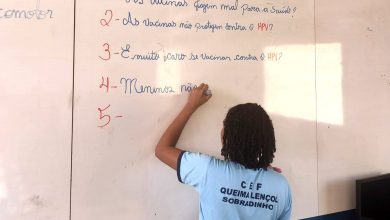 comotor
vacinas fazem mal para a saúde?
2- As vacinas não protegem contra o HPV?
3- É muito caro se vacinar contra o HPV?
4- Meninos não
5-
C E F
QUEIMA LENÇOL
SOBRADINHO